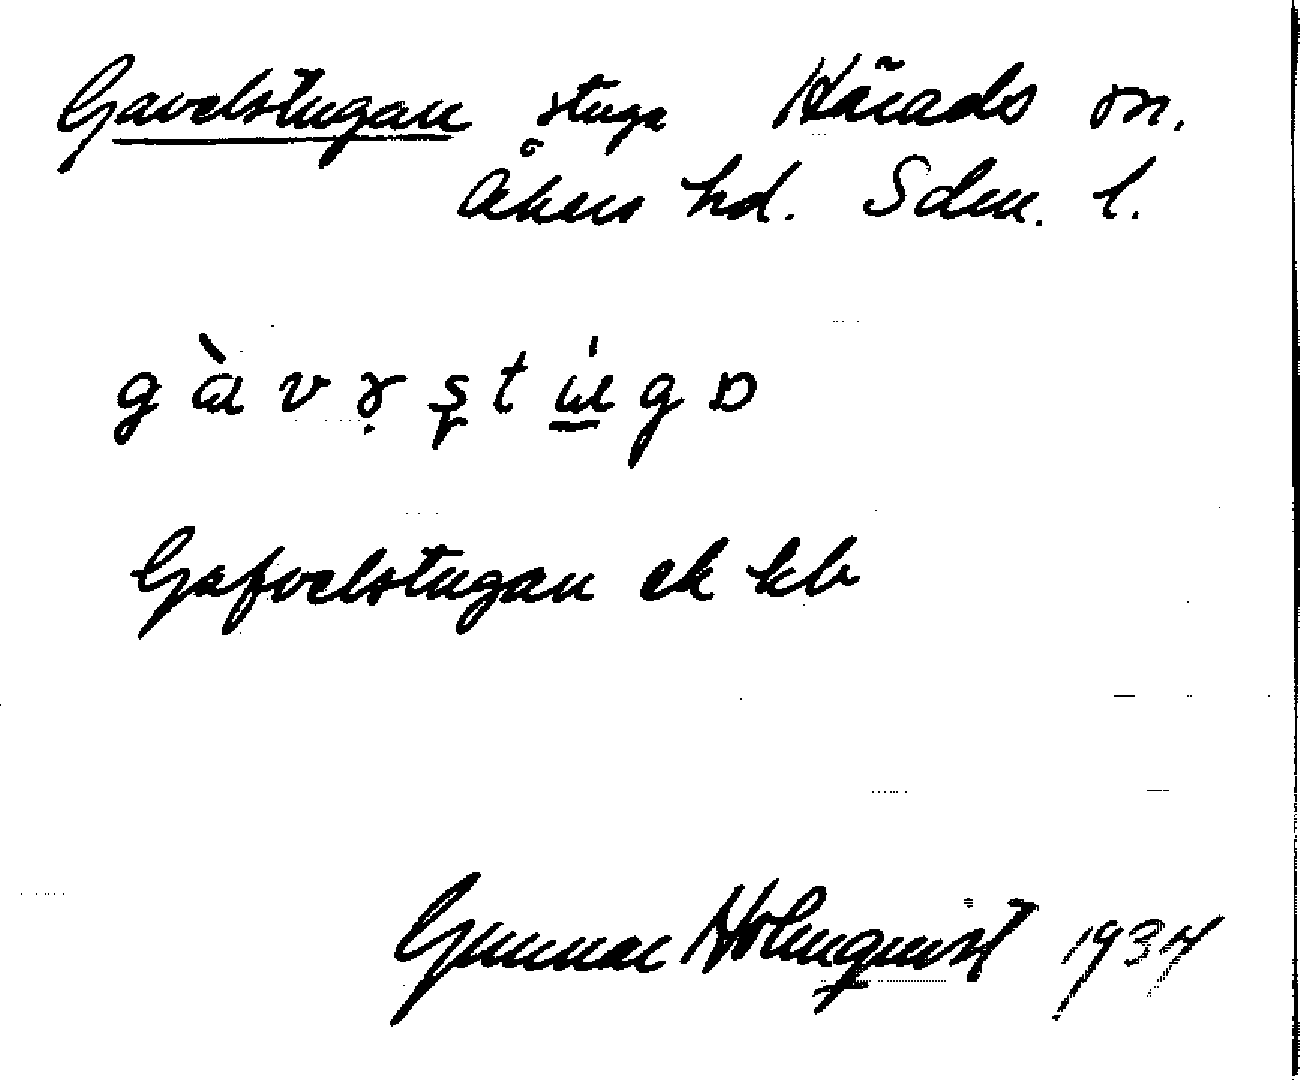 Gavelstugan stuga Härads sn.
Åkers hd. Sdm. l.
Gafvelstugan ek kb
Gunnar Holmquist 1934